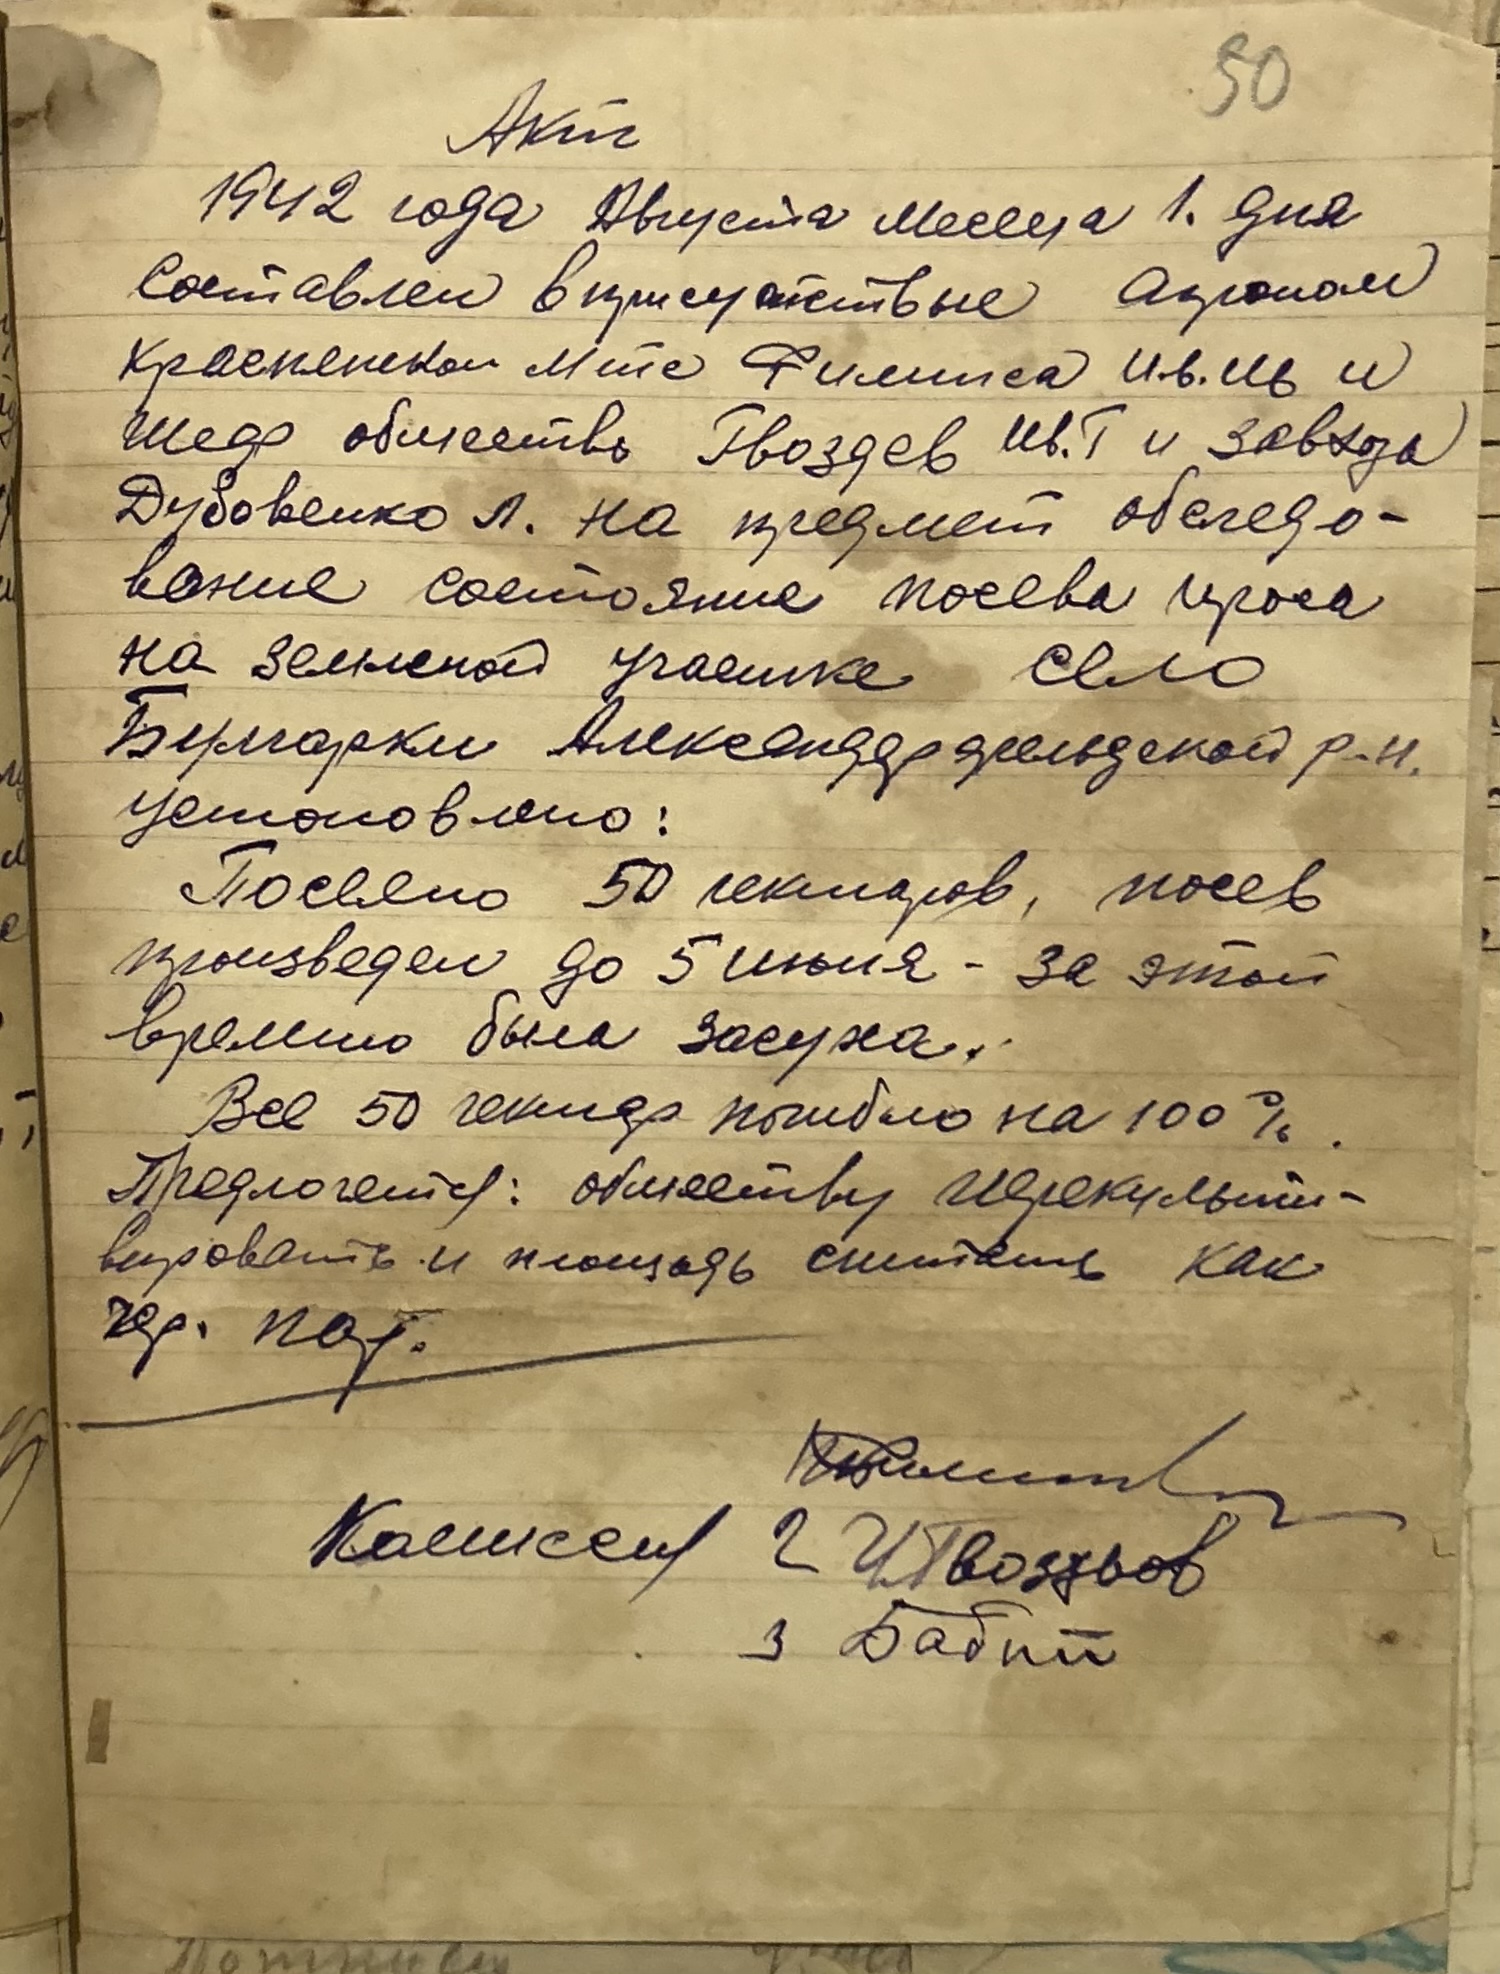 50
Акт
1942 года Августа месеца 1. дня
Составлен вприсутствые Агроном
Красненской Мтс Филипса Ив.Ив и
Шеф обшество Гвоздев Ив.Г и завхоза
Дубовенко Л. на предмет обследо-
вание состояние посева проса
на земленой участке село
Булгарки Александрфельдской р-н.
Установлено:
Посеяно 50 гектаров, посев
произведен до 5 июня - за этой
времьио была засуха.
Все 50 гектар погибло на 100%.
Предлогется: обшеству перекульти-
вировать и площадь считать как
чер. пар.
Комиссия 2 И.Гвоздьов
3 Бабий